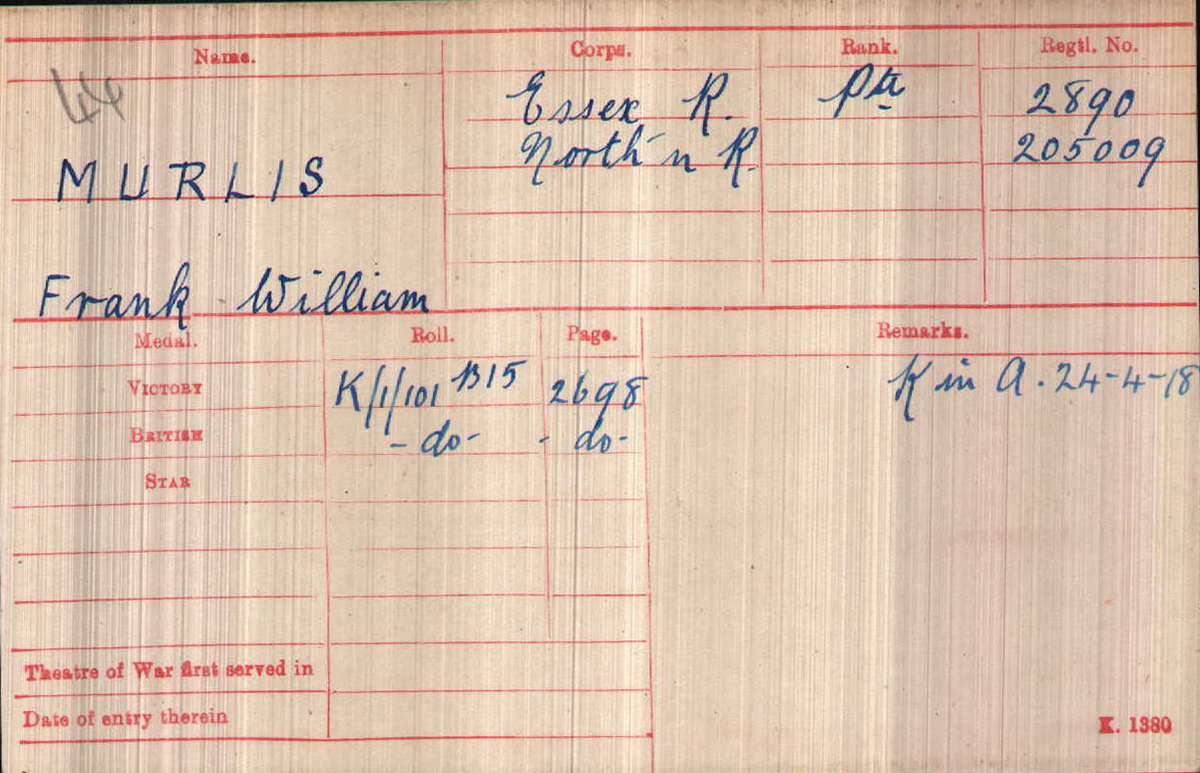 Name. Corps. Rank. Regtl. No.
Essex R. Pte 2890
North'n R. 205009
MURLIS
Frank William
Medal. Roll. Page. Remarks.
VICTORY K/1/101 B15 2698 K in A. 24-4-18
BRITISH -do- -do-
STAR
Theatre of War first served in
Date of entry therein
K. 1380